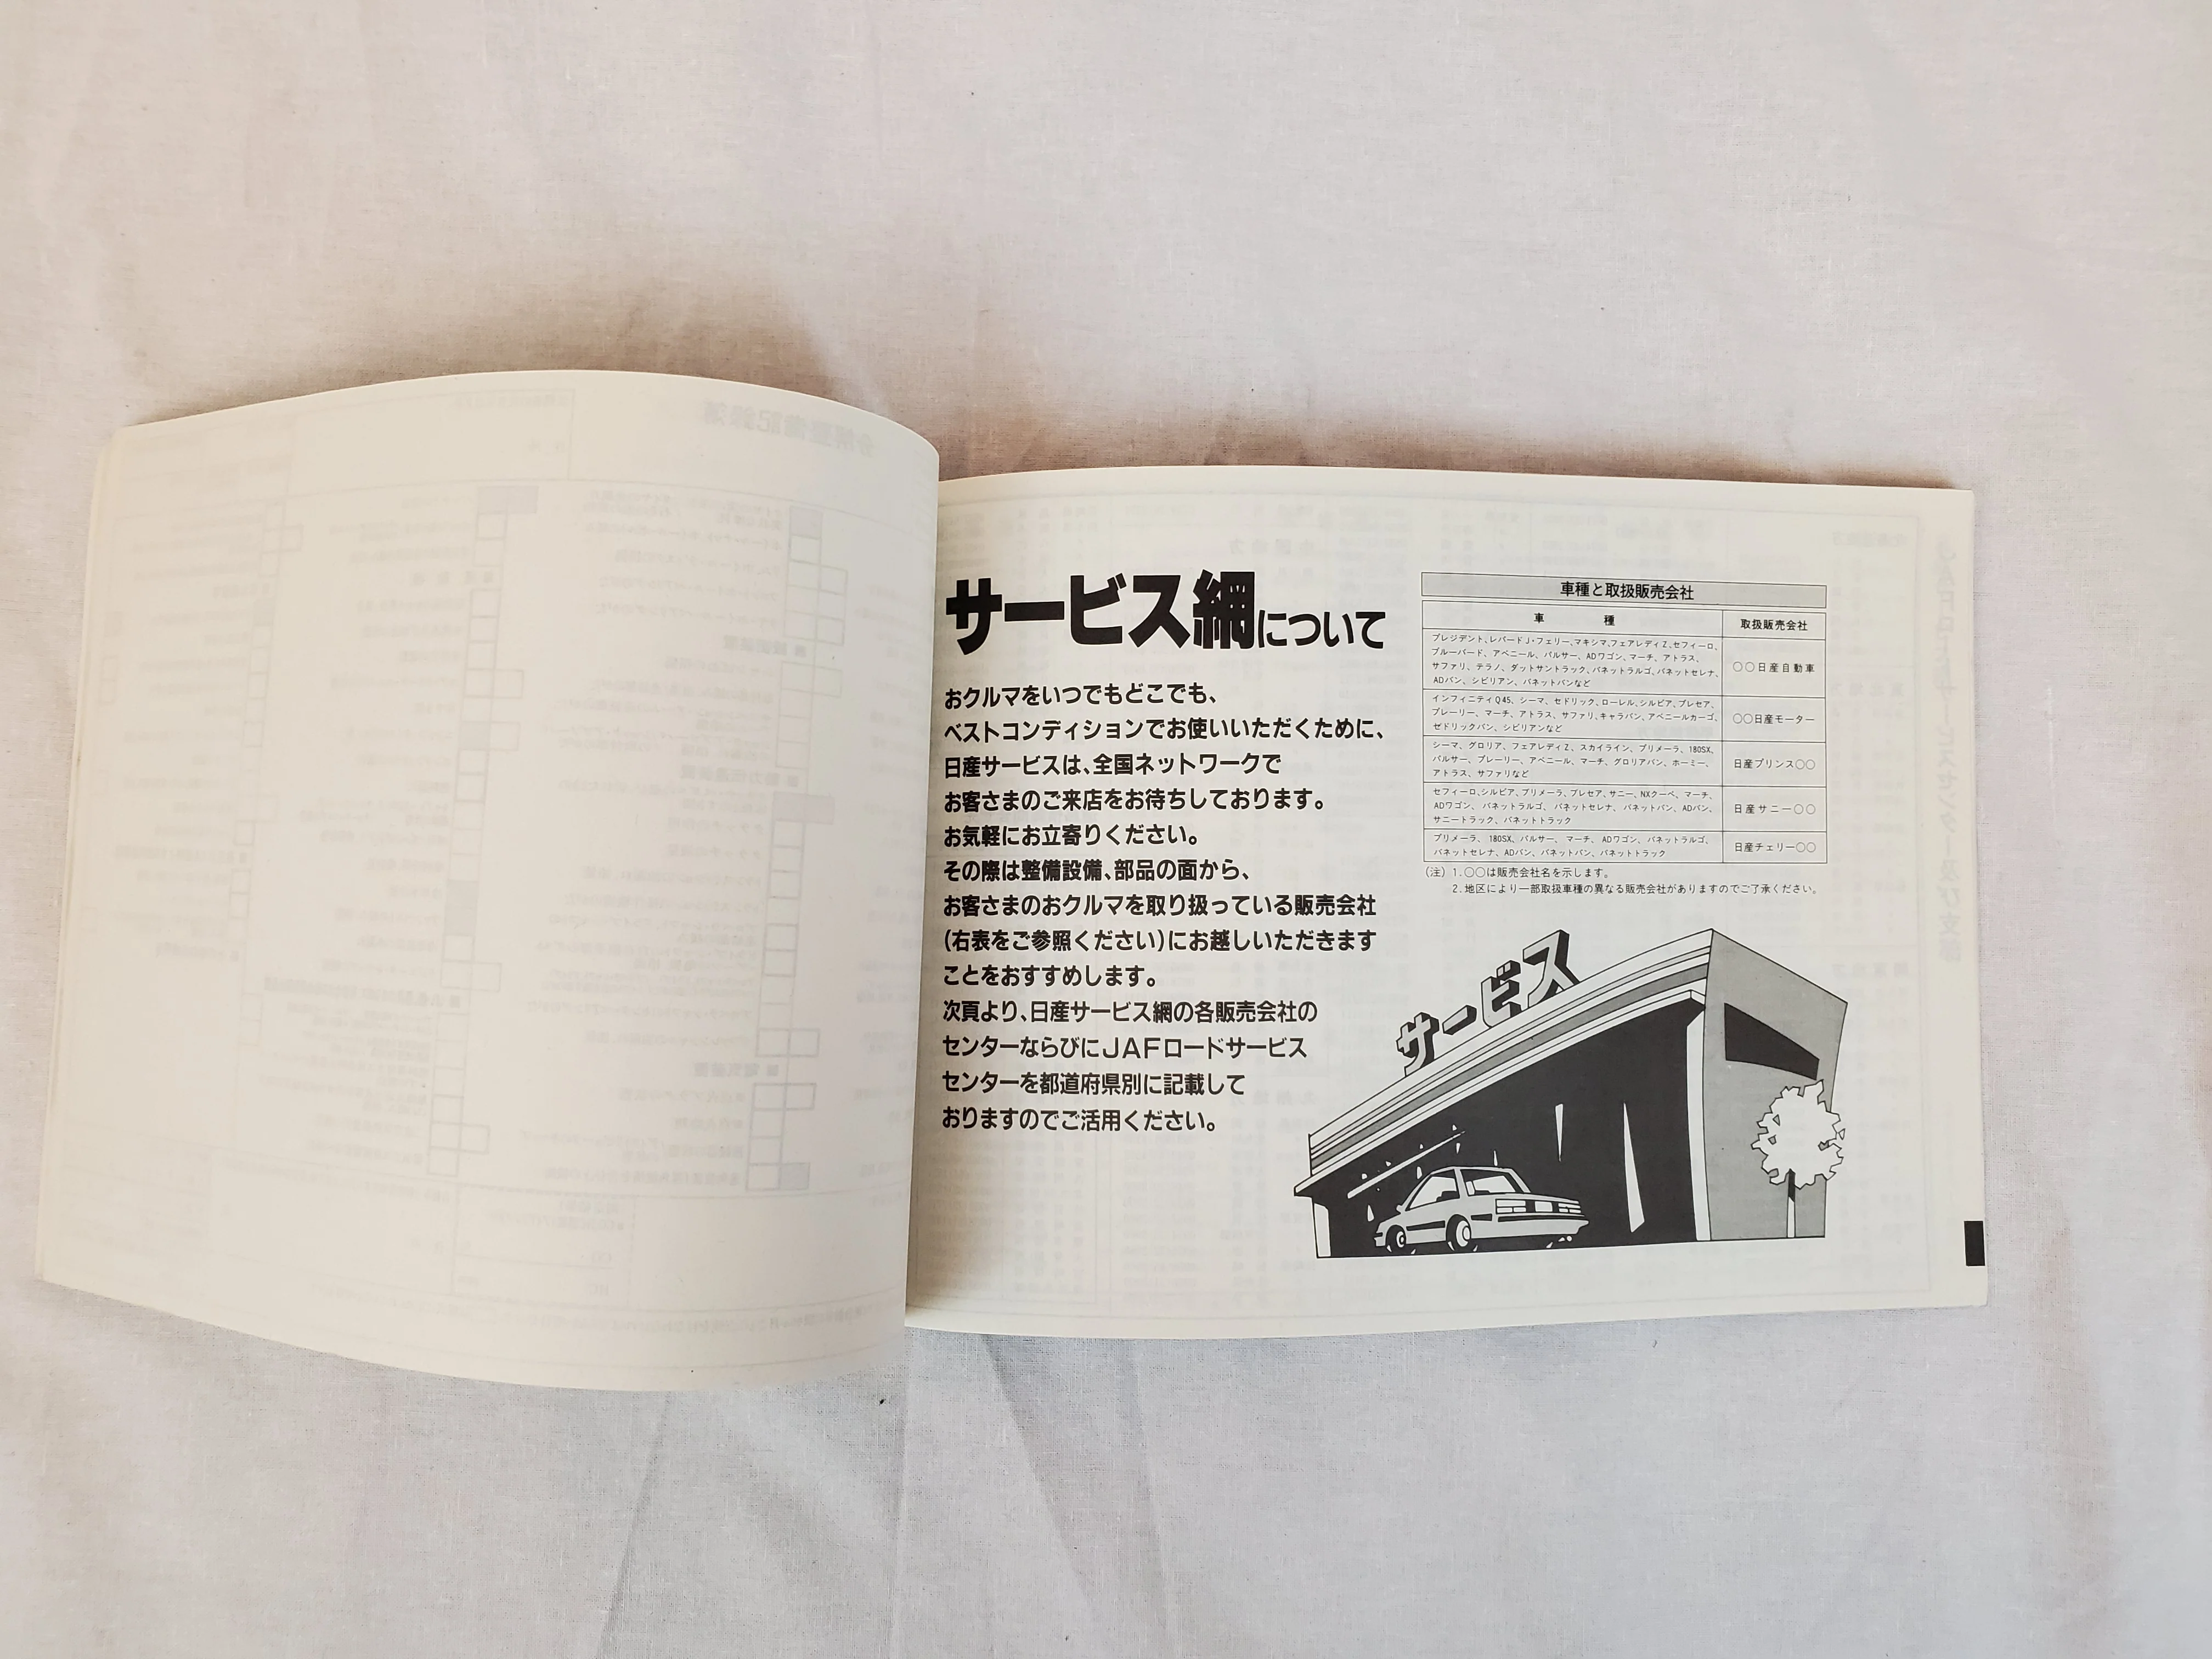 サービス網について
おクルマをいつでもどこでも、
ベストコンディションでお使いいただくために、
日産サービスは、全国ネットワークで
お客さまのご来店をお待ちしております。
お気軽にお立寄りください。
その際は整備設備、部品の面から、
お客さまのおクルマを取り扱っている販売会社
(右表をご参照ください)にお越しいただきます
ことをおすすめします。
次頁より、日産サービス網の各販売会社の
センターならびにJAFロードサービス
センターを都道府県別に記載して
おりますのでご活用ください。
車種と取扱販売会社
車種 取扱販売会社
プレジデント、レパードJ・フェリー、マキシマ、フェアレディZ、セフィーロ、
ブルーバード、アベニール、パルサー、ADワゴン、マーチ、アトラス、
サファリ、テラノ、ダットサントラック、バネットラルゴ、バネットセレナ、
ADバン、シビリアン、バネットバンなど
〇〇日産自動車
インフィニティQ45、シーマ、セドリック、ローレル、シルビア、プレセア、
プレーリー、マーチ、アトラス、サファリ、キャラバン、アベニールカーゴ、
セドリックバン、シビリアンなど
〇〇日産モーター
シーマ、グロリア、フェアレディZ、スカイライン、プリメーラ、180SX、
パルサー、プレーリー、アベニール、マーチ、グロリアバン、ホーミー、
アトラス、サファリなど
日産プリンス〇〇
セフィーロ、シルビア、プリメーラ、プレセア、サニー、NXクーペ、マーチ、
ADワゴン、バネットラルゴ、バネットセレナ、バネットバン、ADバン、
サニートラック、バネットトラック
日産サニー〇〇
プリメーラ、180SX、パルサー、マーチ、ADワゴン、バネットラルゴ、
バネットセレナ、ADバン、バネットバン、バネットトラック
日産チェリー〇〇
(注) 1.〇〇は販売会社名を示します。
2.地区により一部取扱車種の異なる販売会社がありますのでご了承ください。
サービス